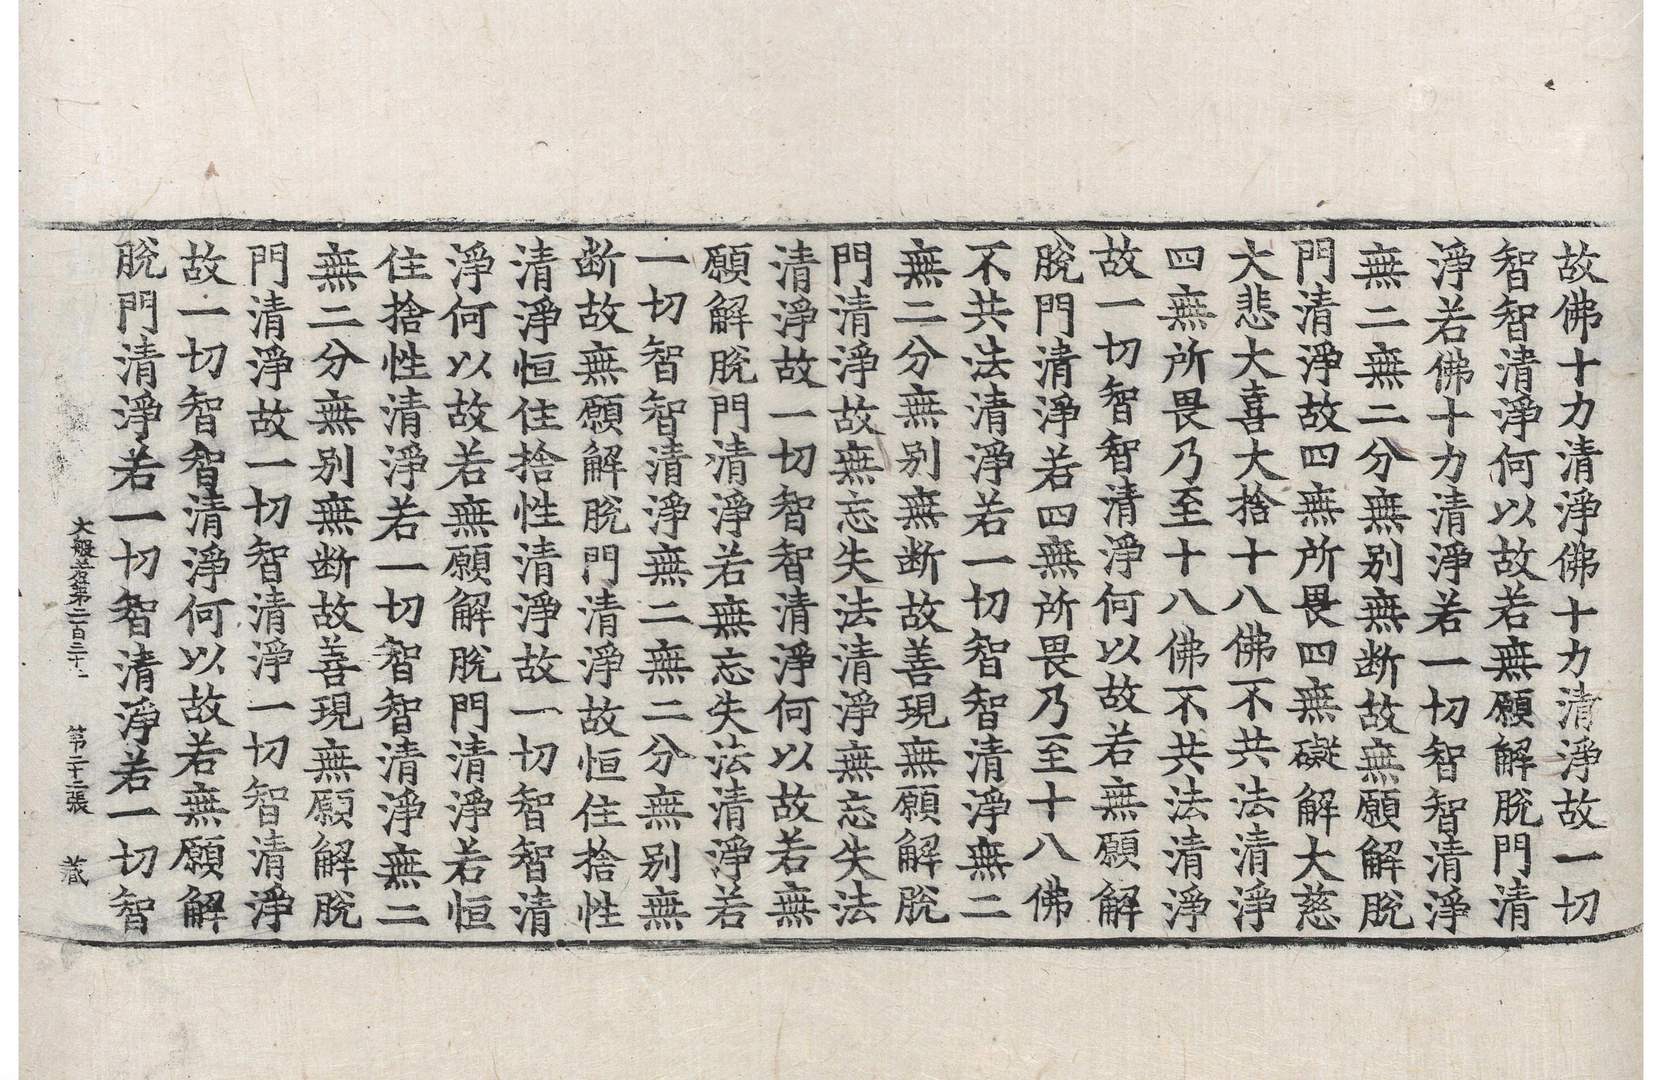 故佛十力清淨佛十力清淨故一切
智智清淨何以故若無願解脫門清
淨若佛十力清淨若一切智智清淨
無二無二分無别無断故無願解脫
門清淨故四無所畏四無礙解大慈
大悲大喜大捨十八佛不共法清淨
四無所畏乃至十八佛不共法清淨
故一切智智清淨何以故若無願解
脫門清淨若四無所畏乃至十八佛
不共法清淨若一切智智清淨無二
無二分無别無断故善現無願解脫
門清淨故無忘失法清淨無忘失法
清淨故一切智智清淨何以故若無
願解脫門清淨若無忘失法清淨若
一切智智清淨無二無二分無别無
断故無願解脫門清淨故恒住捨性
清淨恒住捨性清淨故一切智智清
淨何以故若無願解脫門清淨若恒
住捨性清淨若一切智智清淨無二
無二分無别無断故善現無願解脫
門清淨故一切智清淨一切智清淨
故一切智智清淨何以故若無願解
脫門清淨若一切智清淨若一切智
大般若第二百三十一 第二十二張 藏